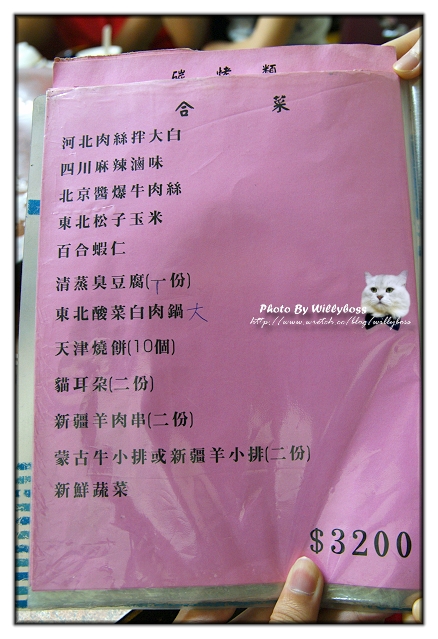 碳烤類
合菜
河北肉絲拌大白
四川麻辣滷味
北京醬爆牛肉絲
東北松子玉米
百合蝦仁
清蒸臭豆腐(一份)
東北酸菜白肉鍋大
天津燒餅(10個)
貓耳朶(二份)
新疆羊肉串(二份)
蒙古牛小排或新疆羊小排(二份)
新鮮蔬菜
$3200
Photo By Willyboss
http://www.wretch.cc/blog/willyboss